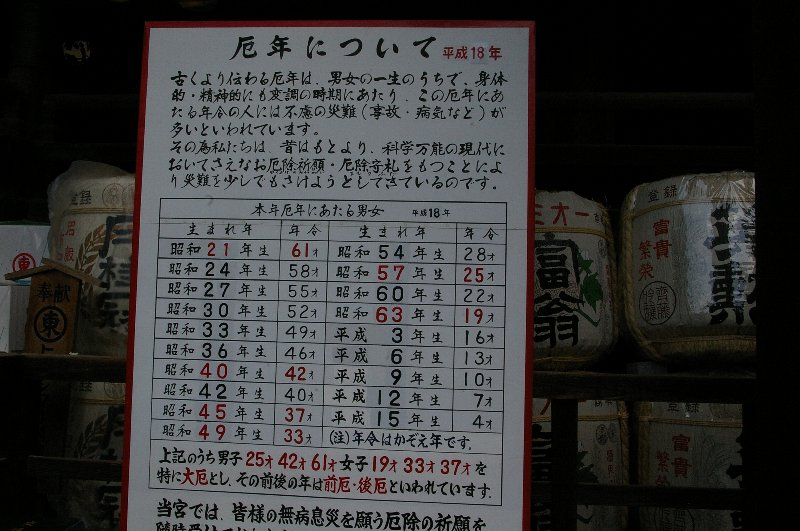 厄年について 平成18年
古くより伝わる厄年は、男女の一生のうちで、身体
的・精神的にも変調の時期にあたり、この厄年にあ
たる年令の人には不慮の災難(事故・病気など)が
多いといわれています。
その為私たちは、昔はもとより、科学万能の現代に
おいてさえなお厄除祈願・厄除守札をもつことによ
り災難を少しでもさけようとしてきているのです。
本年厄年にあたる男女 平成18年
生まれ年 年令 生まれ年 年令
昭和21年生 61才 昭和54年生 28才
昭和24年生 58才 昭和57年生 25才
昭和27年生 55才 昭和60年生 22才
昭和30年生 52才 昭和63年生 19才
昭和33年生 49才 平成3年生 16才
昭和36年生 46才 平成6年生 13才
昭和40年生 42才 平成9年生 10才
昭和42年生 40才 平成12年生 7才
昭和45年生 37才 平成15年生 4才
昭和49年生 33才 (注)年令はかぞえ年です。
上記のうち男子25才42才61才女子19才33才37才を
特に大厄とし、その前後の年は前厄・後厄といわれています。
当宮では、皆様の無病息災を願う厄除の祈願を
奉献
東
登録
月桂冠
三オー
富翁
登録
富貴
繁栄
富貴
繁栄